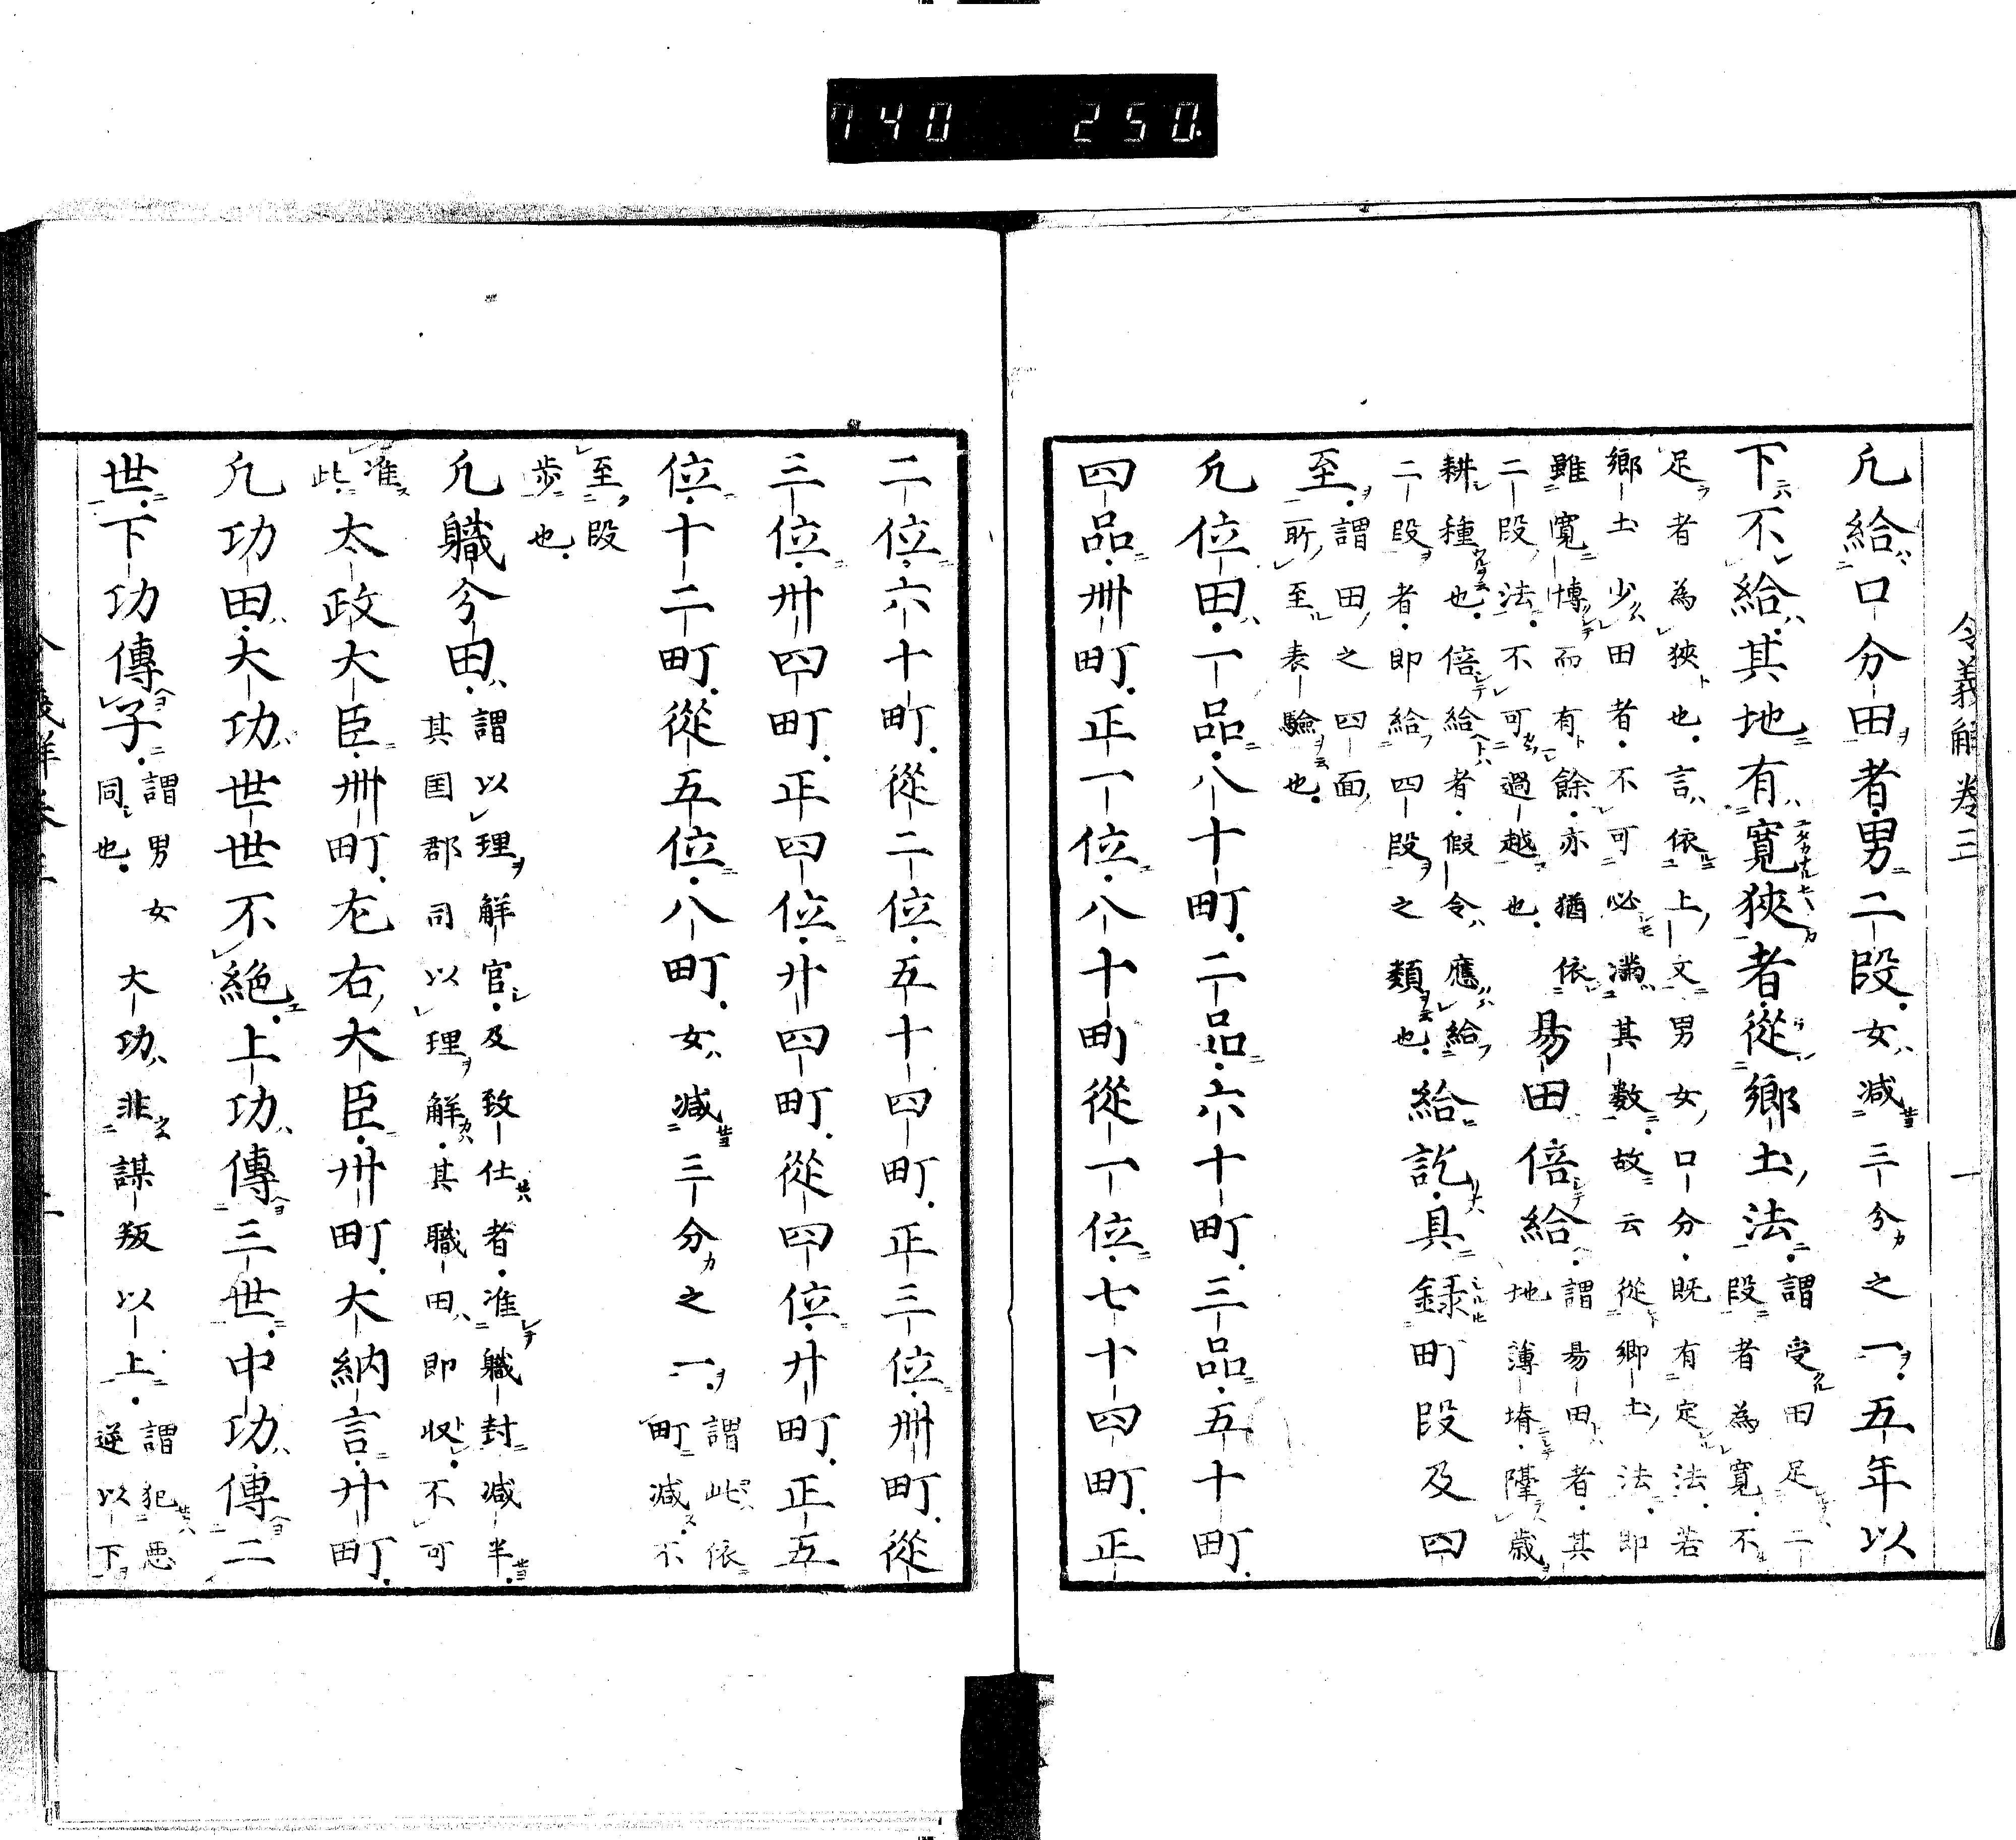 令義解卷三　一
凡給口分田者男二段女減三分之一五年以
下不給其地有寛狹者從鄉土法
謂受田足二
段者為寛不
足者為狹也言依上文男女口分既有定法若
鄉土少田者不可必満其数故云從鄉土法即
雖寛慱而有餘亦猶依
二段法不可過越也
易田倍給
謂易田者其
地薄塉隔歳
耕種也倍給者假令應給
二段者即給四段之類也
給訖具録町段及四
至
謂田之四面
所至表驗也
凡位田一品八十町二品六十町三品五十町
四品卌町正一位八十町從一位七十四町正
二位六十町從二位五十四町正三位卌町從
三位卅四町正四位廿四町從四位廿町正五
位十二町從五位八町女減三分之一
謂此依
町減不
至段
步也
凡職分田
謂以理解官及致仕者准職封減半
其国郡司以理解其職田即收不可
准
此
太政大臣卌町左右大臣卅町大納言廿町
凡功田大功世世不絶上功傳三世中功傳二
世下功傳子
謂男女
同也
大功非謀叛以上
謂犯悪
逆以下
740 250